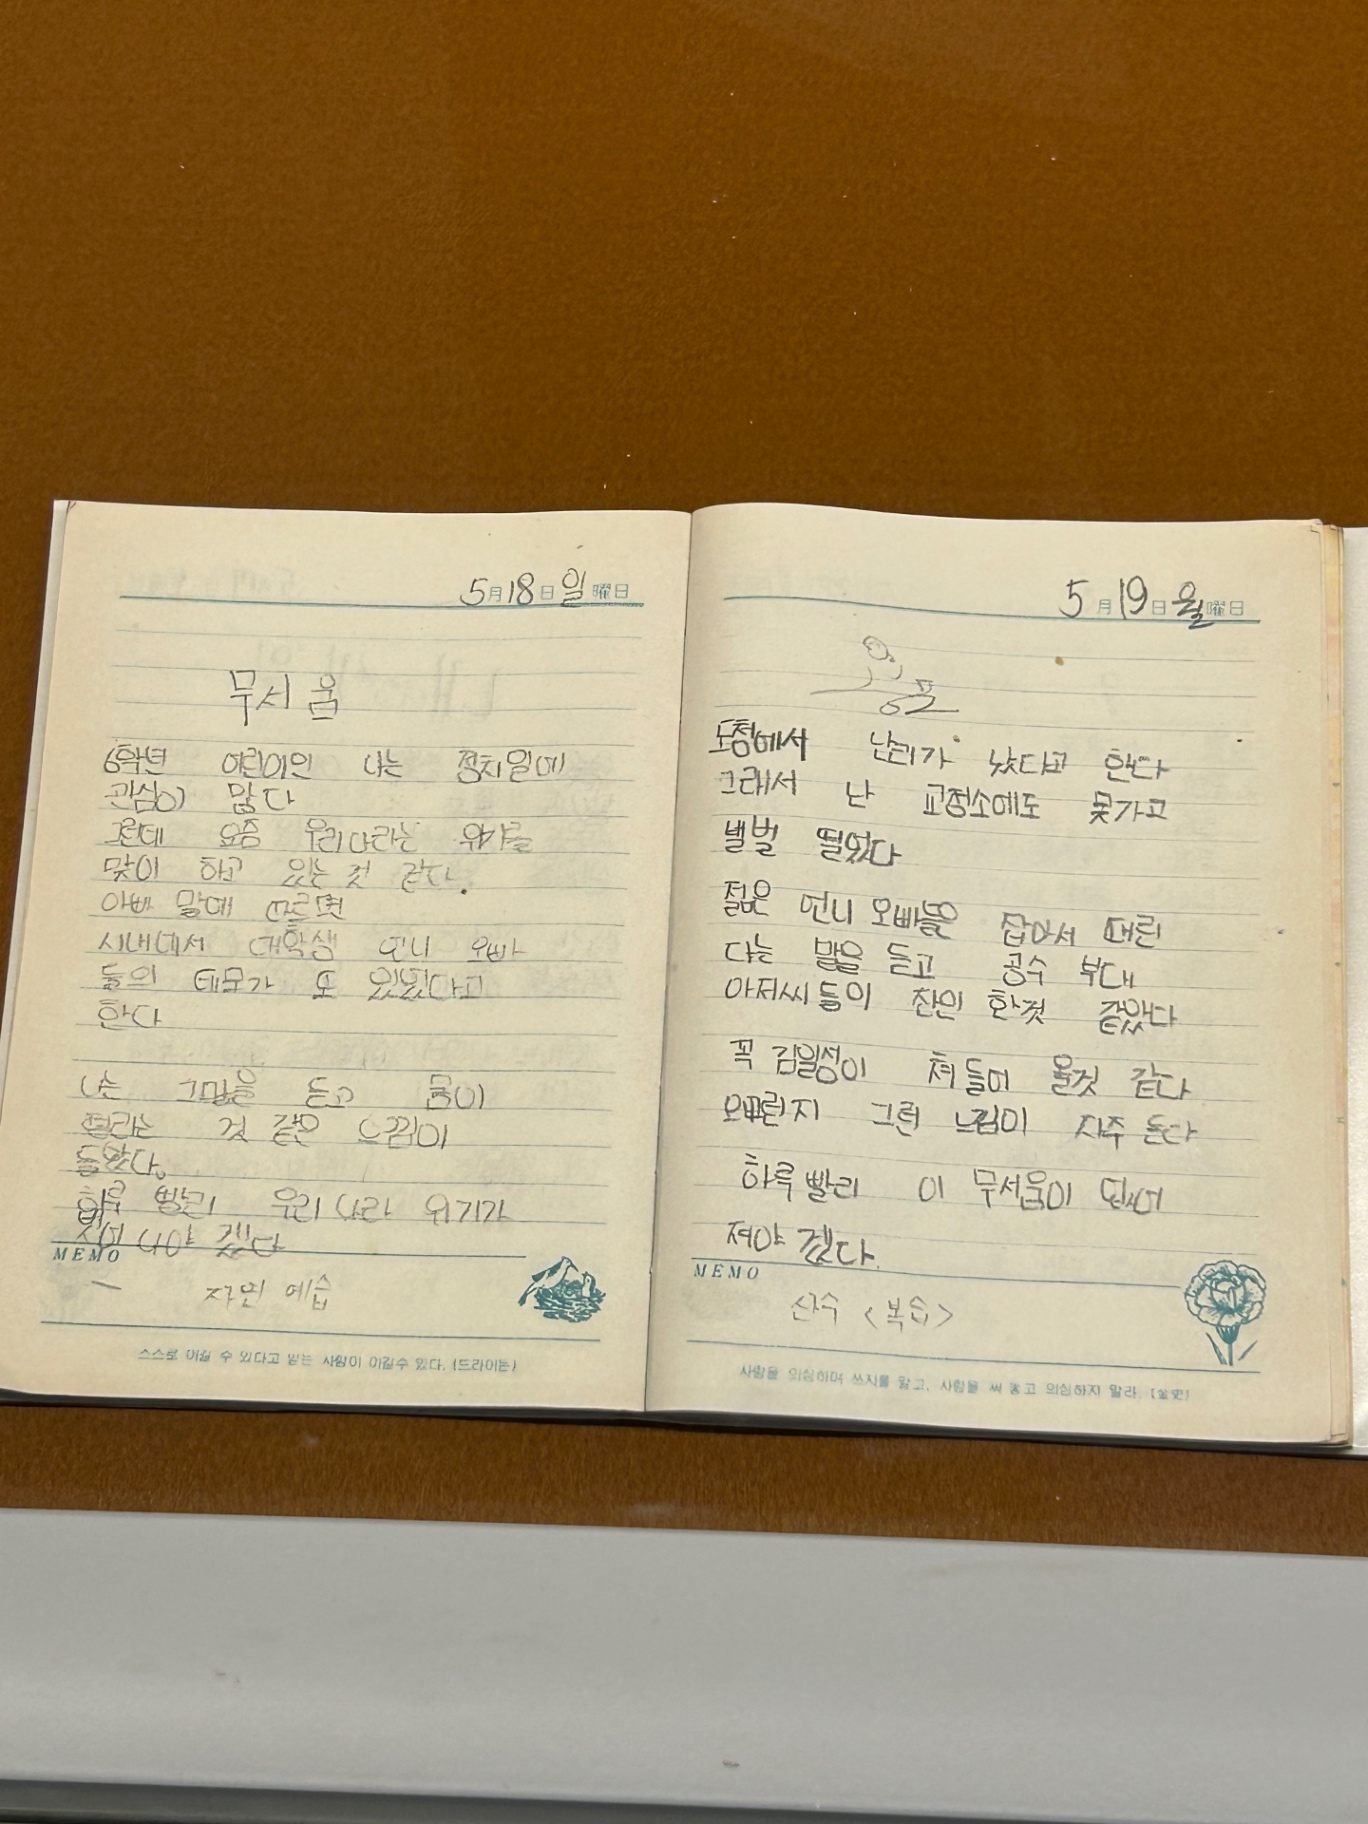 5月18日 일 曜日
무서움
6학년 어린이인 나는 정치일에
관심이 많다
그런데 요즘 우리나라는 위기를
맞이 하고 있는 것 같다.
아빠 말에 따르면
시내에서 대학생 언니 오빠
들의 데모가 또 있었다고
한다
나는 그말을 듣고 몸이
떨리는 것 같은 느낌이
들었다。
하루 빨리 우리나라 위기가
벗어나야 겠다
MEMO
자연 예습
스스로 이길 수 있다고 믿는 사람이 이길수 있다. (드라이든)
5月19日 월 曜日
공포
도청에서 난리가 났다고 한다
그래서 난 교정소에도 못가고
벌벌 떨었다
젊은 언니 오빠들을 잡아서 때린
다는 말을 듣고 공수 부대
아저씨들이 잔인 한것 같았다
꼭 김일성이 쳐들어 올것 같다
오빠린지 그런 느낌이 자주 든다
하루빨리 이 무서움이 없어
져야 겠다.
MEMO
산수 <복습>
사람을 의심하며 쓰지를 말고, 사람을 써 놓고 의심하지 말라. (金史)